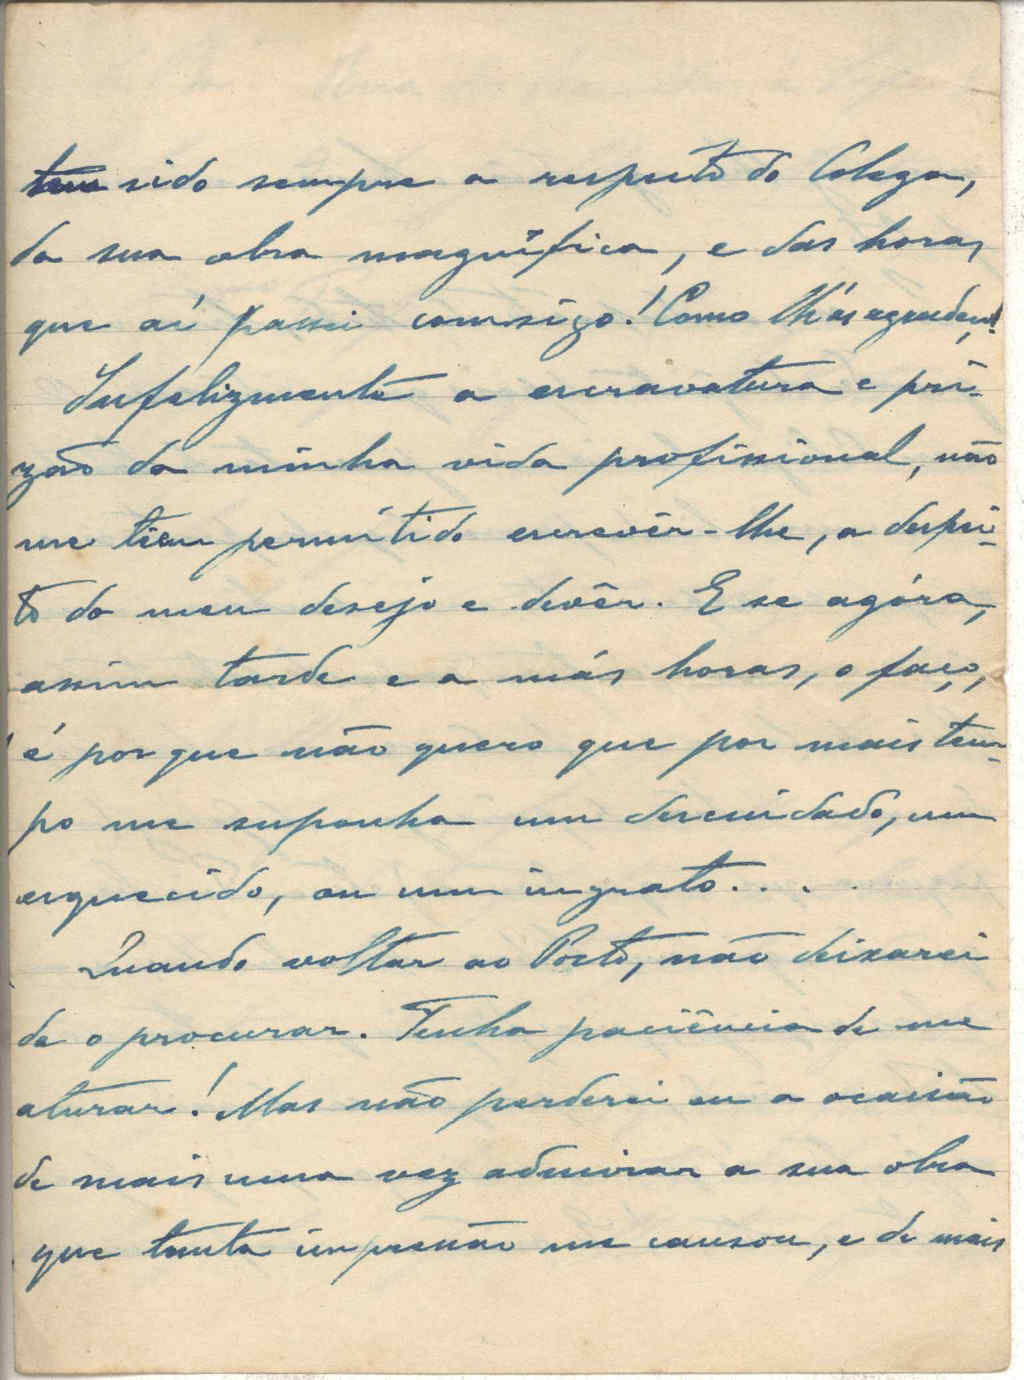 tem sido sempre a respeito do Colega,
da sua obra magnífica, e das horas
que aí passei comsigo! Como lh'as agradeço!
Infelizmente a escravatura e pri-
zão da minha vida profissional, não
me têem permitido escrevêr-lhe, a despei-
to do meu desejo e devêr. E se agóra,
assim tarde e a más horas, o faço,
é porque não quero que por mais tem-
po me suponha um descuidado, um
esquecido, ou um ingrato....
Quando voltar ao Porto, não deixarei
de o procurar. Tenha paciência de me
aturar! Mas não perderei eu a ocasião
de mais uma vez admirar a sua obra
que tanta impressão me causou, e de mais